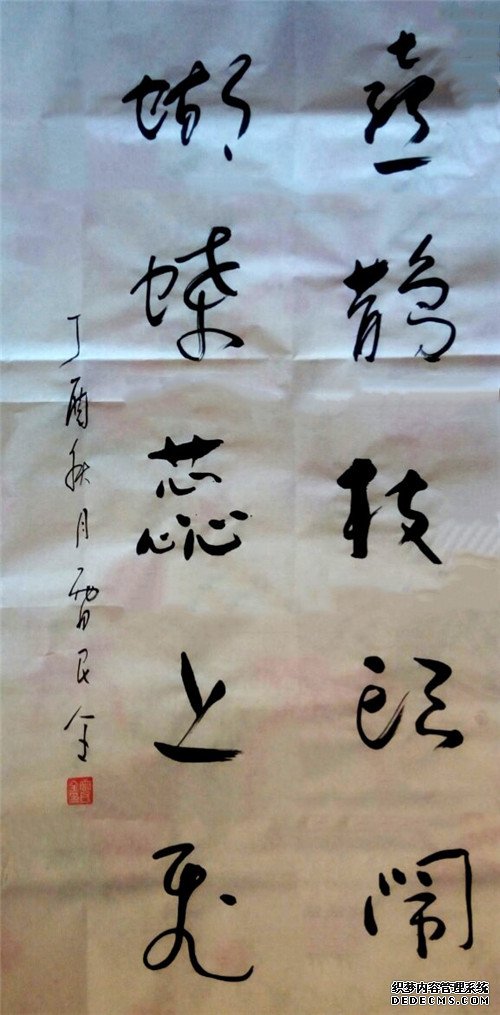 喜鹊枝头闹
蝴蝶蕊上飞
丁酉秋月曹民全
织梦内容管理系统
DEDECMS.COM